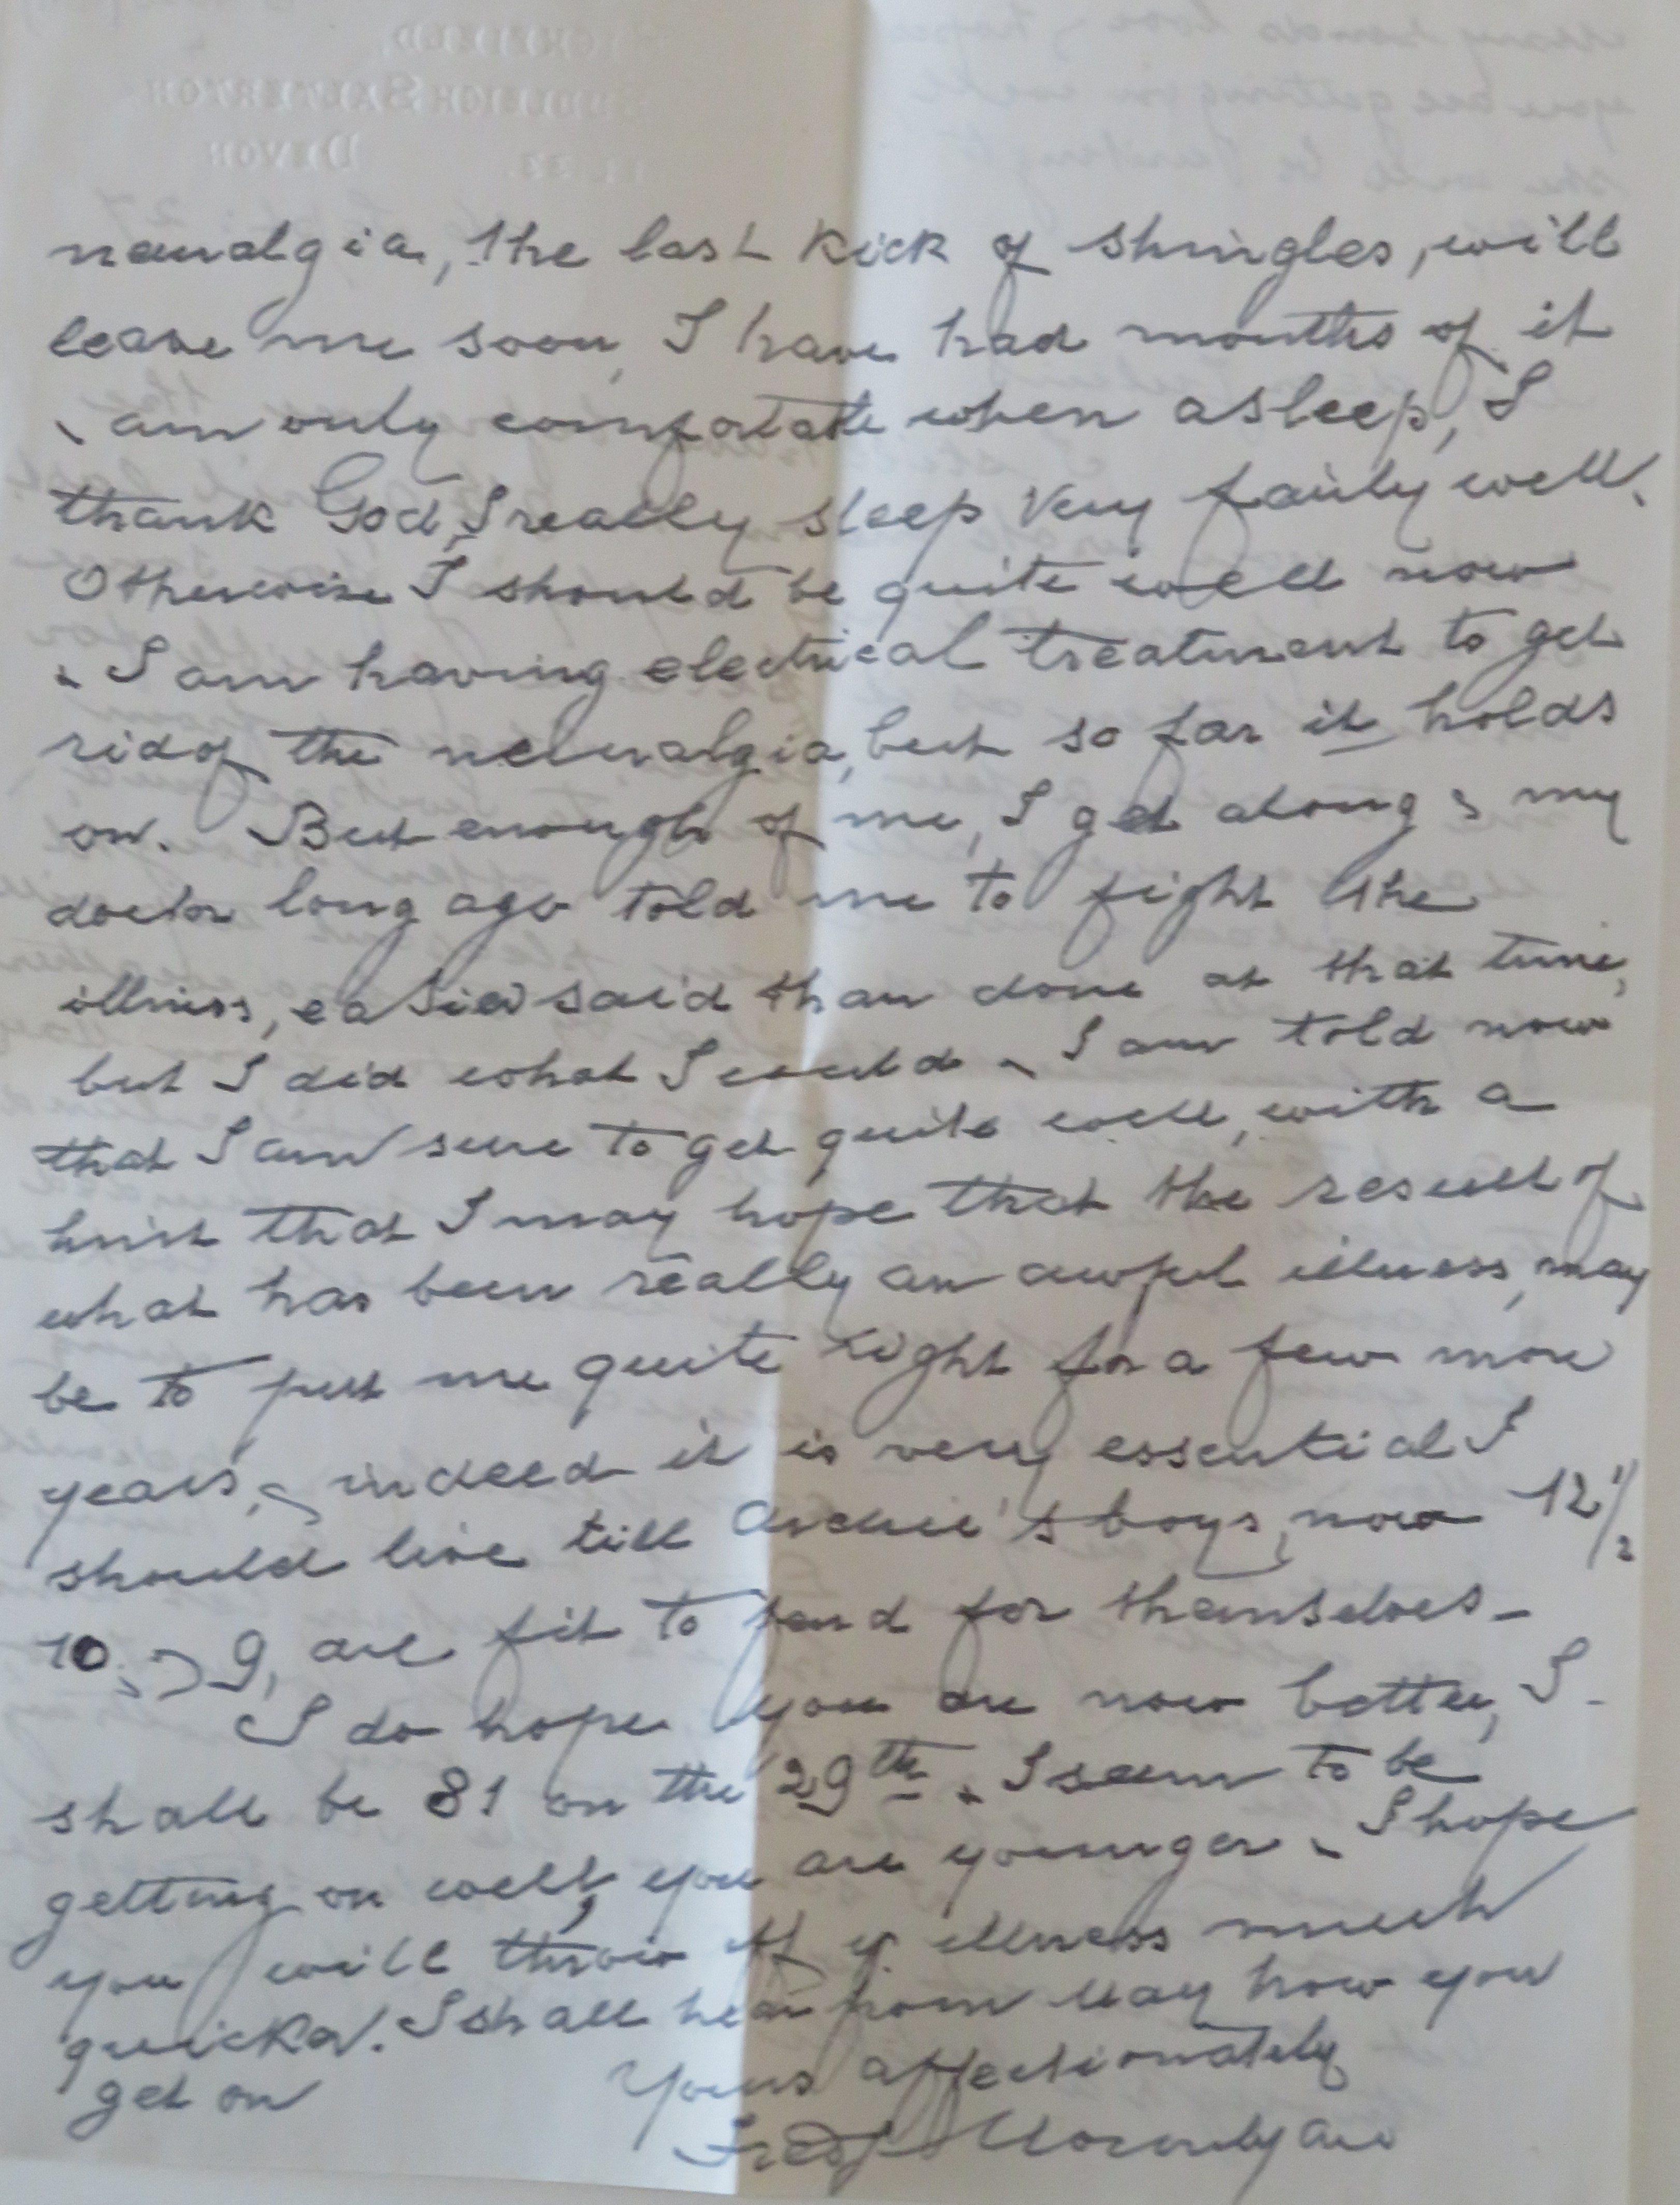 neuralgia, the last kick of shingles, will
leave me soon, I have had months of it
& am only comfortable when asleep, I
thank God, I really sleep very fairly well.
Otherwise I should be quite well now
& I am having electrical treatment to get
rid of the neuralgia, but so far it holds
on. But enough of me, I get along & my
doctor long ago told me to fight the
illness, easier said than done at that time,
but I did what I could & I am told now
that I am sure to get quite well, with a
hint that I may hope that the result of
what has been really an awful illness, may
be to put me quite right for a few more
years, & indeed it is very essential I
should live till Archie's boys, now 12 1/2
10, & 9, are fit to fend for themselves -
I do hope you are now better, I
shall be 81 on the 29th & I seem to be
getting on well, you are younger & I hope
you will throw off yr illness much
quicker. I shall hear from May how you
get on Yours affectionately
Fredk
DEVON